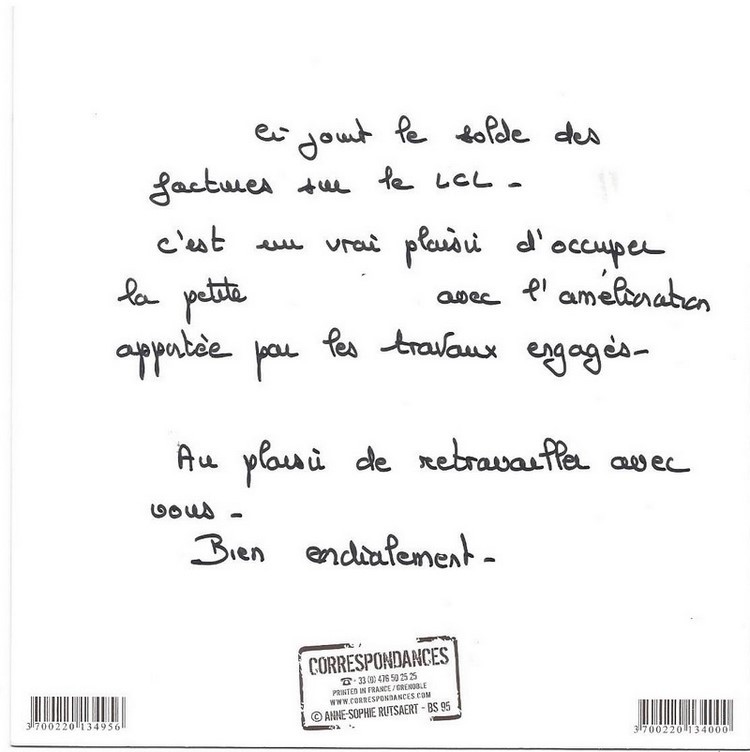 Ci-joint le solde des
factures sur le LCL -
c'est un vrai plaisir d'occuper
la petite avec l'amélioration
apportée par les travaux engagés -
Au plaisir de retravailler avec
vous -
Bien cordialement -
CORRESPONDANCES
☎ - 33 (0) 476 50 25 25
PRINTED IN FRANCE / GRENOBLE
WWW.CORRESPONDANCES.COM
© ANNE-SOPHIE RUTSAERT - BS 95
3700220134956
3700220134000